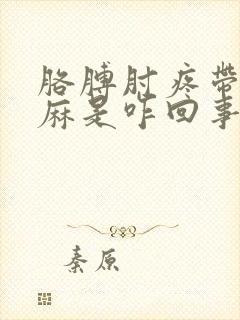 胳膊肘疼带
麻是咋回事
秦原